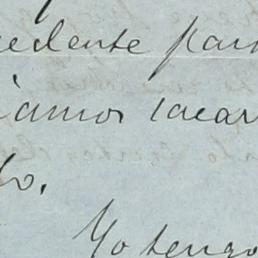 cedente par
iamos sacar
to.
Yo tengo